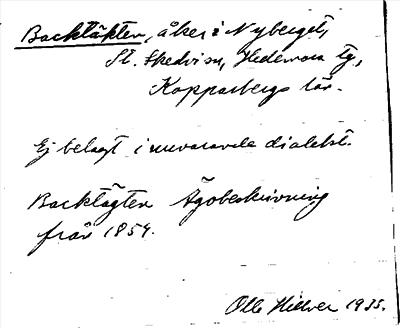 Backtäkten, åker i Nyberget,
St. Skedvi sn, Hedemora tg,
Kopparbergs län.
Ej belagt i nuvarande dialekt.
Backtägten Ägobeskrivning
från 1854.
Olle Hillver 1935.